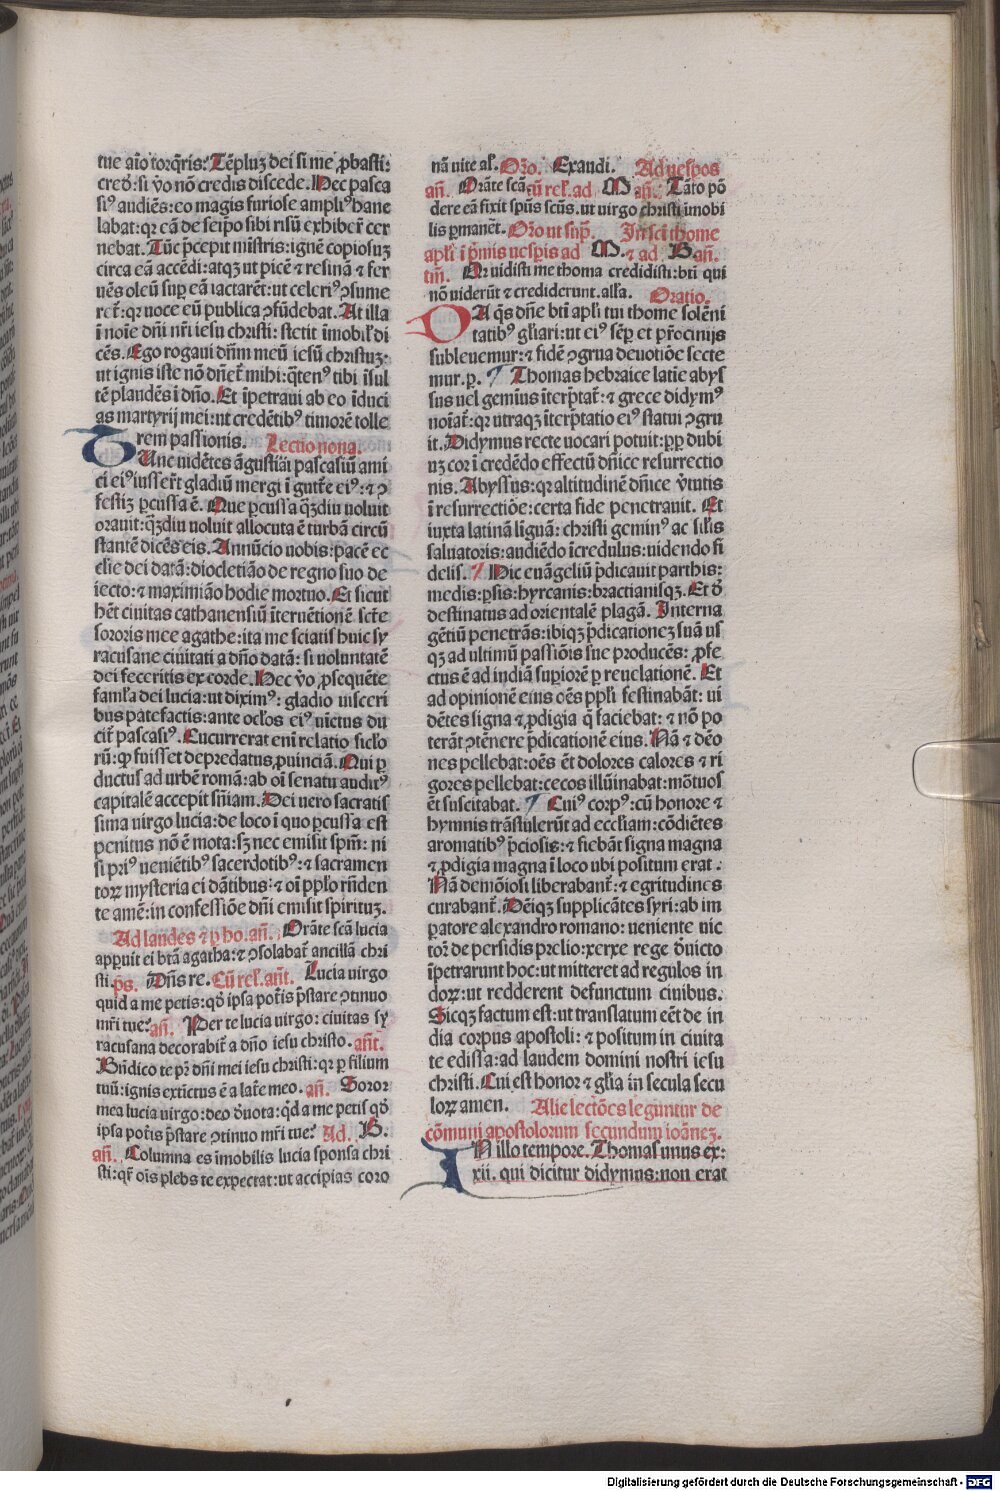 tue aīo torq̄ris. Tēpluz dei si me ꝓbasti:
cred̄: si ꝟo nō credis discede. Hec pasca
siꝰ audiēs: eo magis furiose ampliꝰ bane
labat: qꝛ eā de seipo sibi risū exhiber̄ cer
nebat. Tūc p̄cepit mīstris: ignē copiosuz
circa eā accēdi: atqꝫ ut picē ⁊ resinā ⁊ fer
uēs oleū suꝑ eā iactarēt: ut celeriꝰ ꝯsume
ret̄: qꝛ uoce eū publica ꝯfūdebat. At illa
ī noīe dn̄i nr̄i iesu christi: stetit īmobil̓ di
cēs. Ego rogaui dn̄m meū iesū christuz:
ut ignis iste nō dn̄et̄ mihi: q̄tenꝰ tibi īsul
tē plaudēs ī dn̄o. Et īpetraui ab eo īduci
as martyrij mei: ut credētibꝰ timorē tolle
rem passionis. Lectio nona.
TUnc uidētes āgustiāi pascasiū ami
ci eiꝰ iusser̄t gladiū mergi ī gutt̄e eiꝰ: ⁊ ꝯ
festiꝫ ꝑcussa ē. Que ꝑcussa q̄ꝫdiu uoluit
orauit: q̄ꝫdiu uoluit allocuta ē turbā circū
stantē dicēs eis. Annūcio uobis: pacē ec
clīe dei datā: diocletiāo de regno suo de
iecto: ⁊ maximiāo hodie mortuo. Et sicut
hēt ciuitas cathanensiū īteruētionē scīte
sororis mee agathe: ita me sciatis huic sy
racusane ciuitati a dn̄o datā: si uoluntatē
dei feceritis ex corde. Hec ꝟo ꝓsequēte
famľa dei lucia: ut diximꝰ: gladio uisceri
bus patefactis: ante ocľos eiꝰ uīctus du
cit̄ pascasiꝰ. Cucurrerat enī relatio sicľo
rū: ꝙ fuisset depredatus ꝓuinciā. Qui ꝑ
ductus ad urbē romā: ab oī senatu auditꝰ
capitalē accepit sn̄iam. Dei uero sacratis
sima uirgo lucia: de loco ī quo ꝑcussa est
penitus nō ē mota: sꝫ nec emisit spm̄: ni
si priꝰ ueniētibꝰ sacerdotibꝰ: ⁊ sacramen
toꝝ mysteria ei dātibus: ⁊ oī ppľo rn̄den
te amē: in confessiōe dn̄i emisit spirituz.
Ad laudes ⁊ ꝑ ho. an̄. Orāte scā lucia
apꝑuit ei btā agatha: ⁊ ꝯsolabat̄ ancillā chri
sti. ps̄. Dn̄s re. Cū rel̓. an̄t. Lucia uirgo
quid a me petis: qd̄ ipsa pot̄is p̄stare ꝯtinuo
mr̄i tue. an̄. Per te lucia uirgo: ciuitas sy
racusana decorabit̄ a dn̄o iesu christo. an̄t.
Bn̄dico te pr̄ dn̄i mei iesu christi: qꝛ ꝑ filium
tuū: ignis extīctus ē a lat̄e meo. an̄. Soror
mea lucia uirgo: deo d̄uota: qd̄ a me petis qd̄
ipsa pot̄is p̄stare ꝯtinuo mr̄i tue. Ad. B.
an̄. Columna es īmobilis lucia sponsa chri
sti: qꝛ oīs plebs te expectat: ut accipias coro
nā uite al̓. Or̄o. Exaudi. Ad uesꝑos
an̄. Orāte scā. cū rel̓. ad M an̄. Tāto pō
dere eā fixit spūs scūs. ut uirgo christi īmobi
lis ꝑmanēt. Or̄o ut supͣ. In scī thome
apľi ī pͥmis uesꝑis ad M. ⁊ ad B an̄.
tm̄. Qr uidisti me thoma credidisti: btī qui
nō uiderūt ⁊ crediderunt. alľa. Oratio.
DA qs̄ dn̄e btī apľi tui thome solēni
tatibꝰ gľiari: ut eiꝰ sēꝑ et pr̄ocinijs
subleuemur: ⁊ fidē ꝯgrua deuotiōe secte
mur. ꝑ. Thomas hebraice latīe abys
sus uel gemīus īterp̄tat̄: ⁊ grece didymꝰ
noīat̄: qꝛ utraqꝫ īterp̄tatio eiꝰ statui ꝯgru
it. Didymus recte uocari potuit: ꝓp̄ dubi
uꝫ cor ī credēdo effectū dn̄ice resurrectio
nis. Abyssus: qꝛ altitudinē dn̄ice ꝟtutis
ī resurrectiōe: certa fide penetrauit. Et
iuxta latinā līguā: christi geminꝰ ac sil̓is
saluatoris: audiēdo īcredulus: uidendo fi
delis. Hic euāgeliū p̄dicauit parthis:
medis: ꝑsis: hyrcanis: bractianisqꝫ. Et d̄
destinatus ad orientalē plagā. Interna
gētiū penetrās: ibiqꝫ p̄dicationeꝫ suā us
qꝫ ad ultimū passiōis sue producēs: ꝓfe
ctus ē ad indiā superiorē ꝑ reuelationē. Et
ad opinionē eius oēs ppľi festinabāt: ui
dētes signa ⁊ ꝓdigia q̄ faciebat: ⁊ nō po
terāt ꝯtēnere p̄dicationē eius. Nā ⁊ dēo
nes pellebat: oēs ēt dolores calores ⁊ ri
gores pellebat: cecos illūinabat: mōtuos
ēt suscitabat. Cuiꝰ corpꝰ: cū honore ⁊
hymnis trāstulerūt ad eccľiam: cōdiētes
aromatibꝰ p̄ciosis: ⁊ fiebāt signa magna
⁊ ꝓdigia magna ī loco ubi positum erat.
Nā demōiosi liberabant̄: ⁊ egritudines
curabant̄. Dēiqꝫ supplicātes syri: ab im
ꝑatore alexandro romano: ueniente uic
tor̄ de persidis prelio: xerxe rege d̄uicto
īpetrarunt hoc: ut mitteret ad regulos in
doꝝ: ut redderent defunctum ciuibus.
Sicqꝫ factum est: ut translatum eēt de in
dia corpus apostoli: ⁊ positum in ciuita
te edissa: ad laudem domini nostri iesu
christi. Cui est honor ⁊ gľia in secula secu
loꝝ amen. Alie lectōes leguntur de
cōmuni apostolorum secundum ioānez.
IN illo tempore. Thomas unus ex:
xii. qui dicitur didymus: non erat
Digitalisierung gefördert durch die Deutsche Forschungsgemeinschaft - DFG